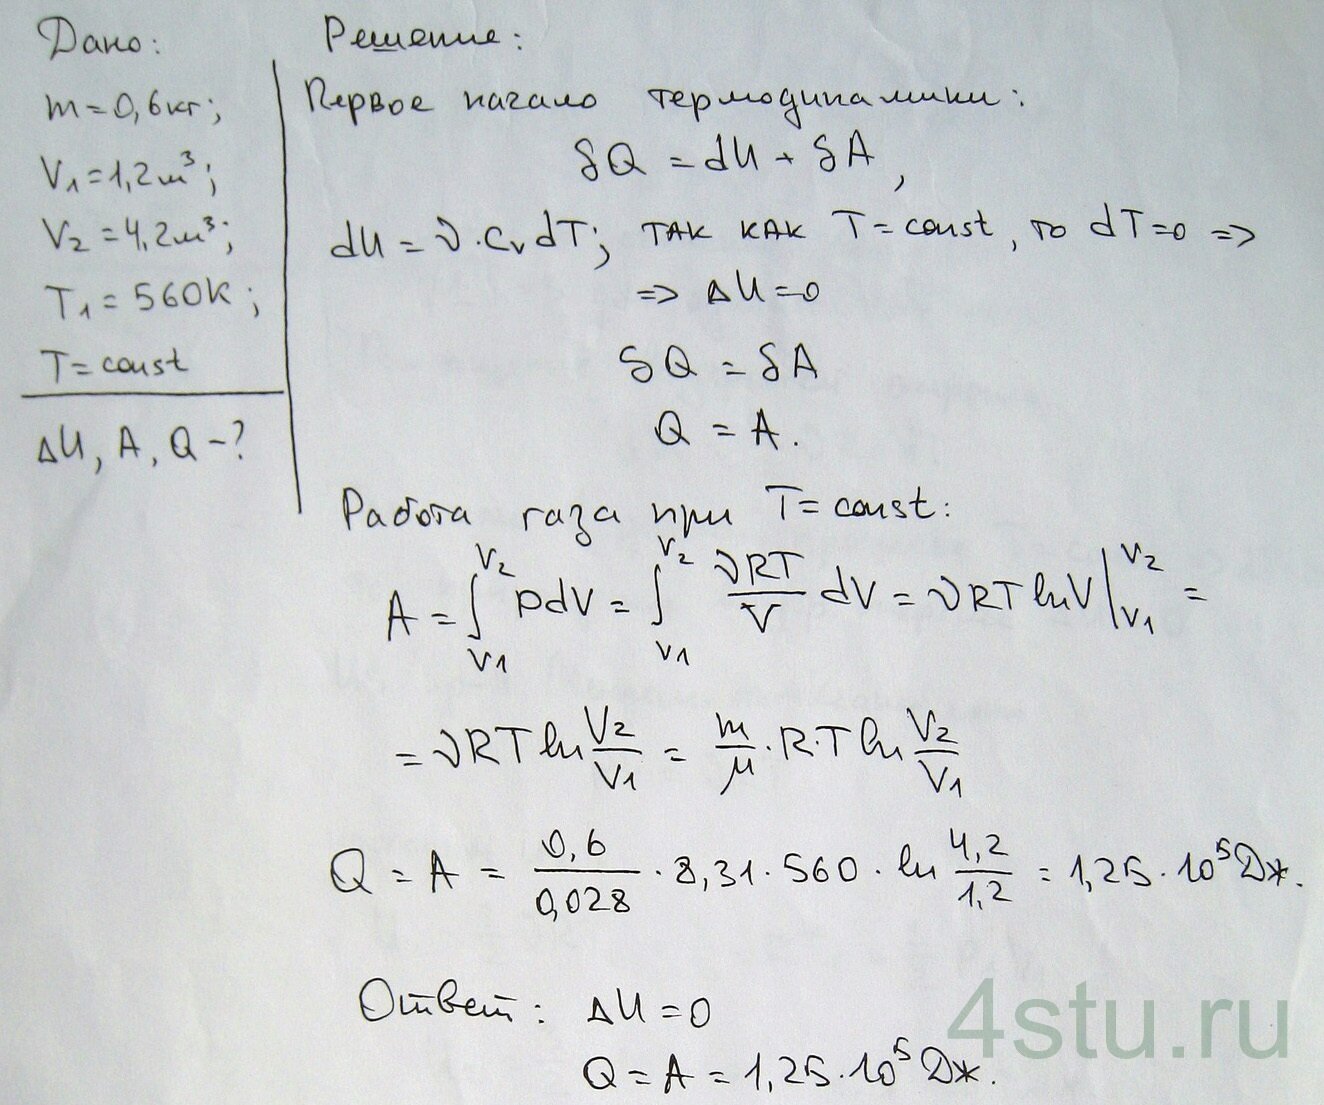 Дано:
m=0,6кг;
V₁=1,2м³;
V₂=4,2м³;
T₁=560К;
T=const
ΔU, A, Q-?
Решение:
Первое начало термодинамики:
δQ = dU + δA,
dU = ν·Cv dT; так как T=const, то dT=0 =>
=> ΔU=0
δQ = δA
Q = A.
Работа газа при T=const:
A = ∫_{V1}^{V2} pdV = ∫_{V1}^{V2} νRT/V dV = νRT lnV |_{V1}^{V2} =
= νRT ln V₂/V₁ = m/μ · R·T ln V₂/V₁
Q = A = 0,6/0,028 · 8,31 · 560 · ln 4,2/1,2 = 1,25·10⁵ Дж.
Ответ: ΔU=0
Q = A = 1,25·10⁵ Дж.
4stu.ru